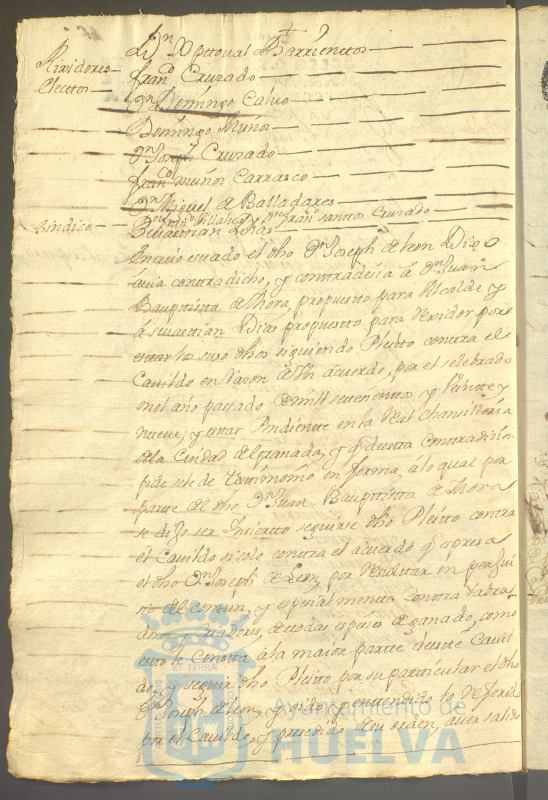 Dn Xpttoual Barrienttos
Rixidores Franco Cruzado
Electtos Dn Domingo Caluo
Domingo Muños
Dn Joseph Cruzado
Franco muños Carrasco
Dn Miguel de Balladares
Sindico Dn Franco santos Cruzado
Seuasttian Dias
En cuio estado el dho Dn Joseph de leon Dixo
auia contradicho, y contradesia á Dn Juan
Bauptista de Mora, propuestto para Alcalde y
á seuasttian Dias propuestto para Rexidor por
esttar los suso dhos siguiendo Pleitto contra el
Cauildo en razon de Un acuerdo, por el selebrado
en el año pasado de mill settesienttos y Veintte y
nueue; y esttar Pendientte en la Real Chansilleria
de la Ciudad de Granada, y q de esta Contradision
pide se le de testimonio en forma, á lo qual por
partte del dho Dn Juan Bauptistta de Mora
se dijo ser Inciertto seguirse dho Pleitto contra
el Cauildo si solo conttra el acuerdo q expresa
el dho Dn Joseph de Leon, por Resulttar en perjui
sio del comun, y espesialmentte conttra labra
dores, y Criadores, de todas espesies de ganado, como
esto le Constta á la maior partte de este Cauil
do, y seguir dho Pleitto por su partticular el dho
Dn Joseph de leon, y oido y enttendido lo Referido
por el Cauildo, y presedido de su orden, auer salido
ET TERRAE
Ayuntamiento de
HUELVA